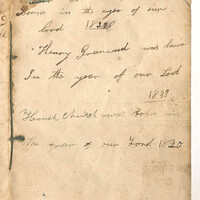 Borne in the eyes of our
lord 1828
Henry Greenwod was borne
In the year of our Lod
1838
Hannah Church was born in
The year of our Lord 1820